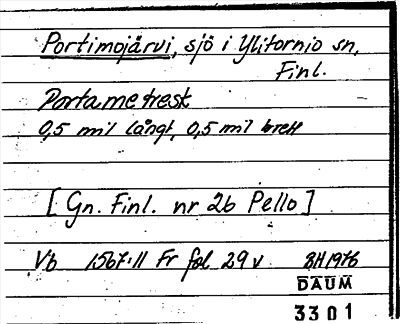 Portimojärvi, sjö i Ylitornio sn,
Finl.
Portametrest
0,5 mil långt, 0,5 mil brett
[ Gn. Finl. nr 2b Pello ]
Vb 1567:11 Fr fol 29 v BH 1976
DAUM
3301